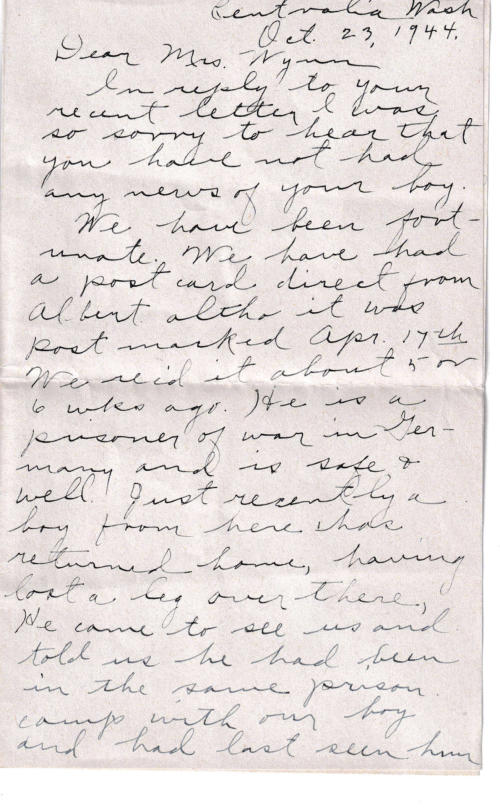 Centralia Wash
Oct. 23, 1944.
Dear Mrs. Wynn
In reply to your
recent letter I was
so sorry to hear that
you have not had
any news of your boy.
We have been fort-
unate. We have had
a post card direct from
Albert altho it was
post marked Apr. 17th
We rec'd it about 5 or
6 wks ago. He is a
prisoner of war in Ger-
many and is safe &
well. Just recently a
boy from here has
returned home, having
lost a leg over there,
He came to see us and
told us he had been
in the same prison
camp with our boy
and had last seen him